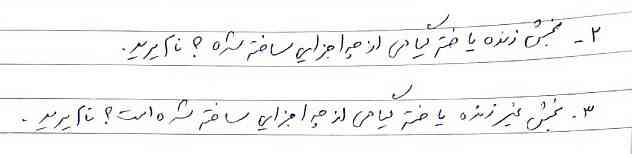 ۲- بخش زنده یاخته گیاهی از چه اجزایی ساخته شده؟ نام ببرید.
۳. بخش غیر زنده یاخته گیاهی از چه اجزایی ساخته شده است؟ نام ببرید.